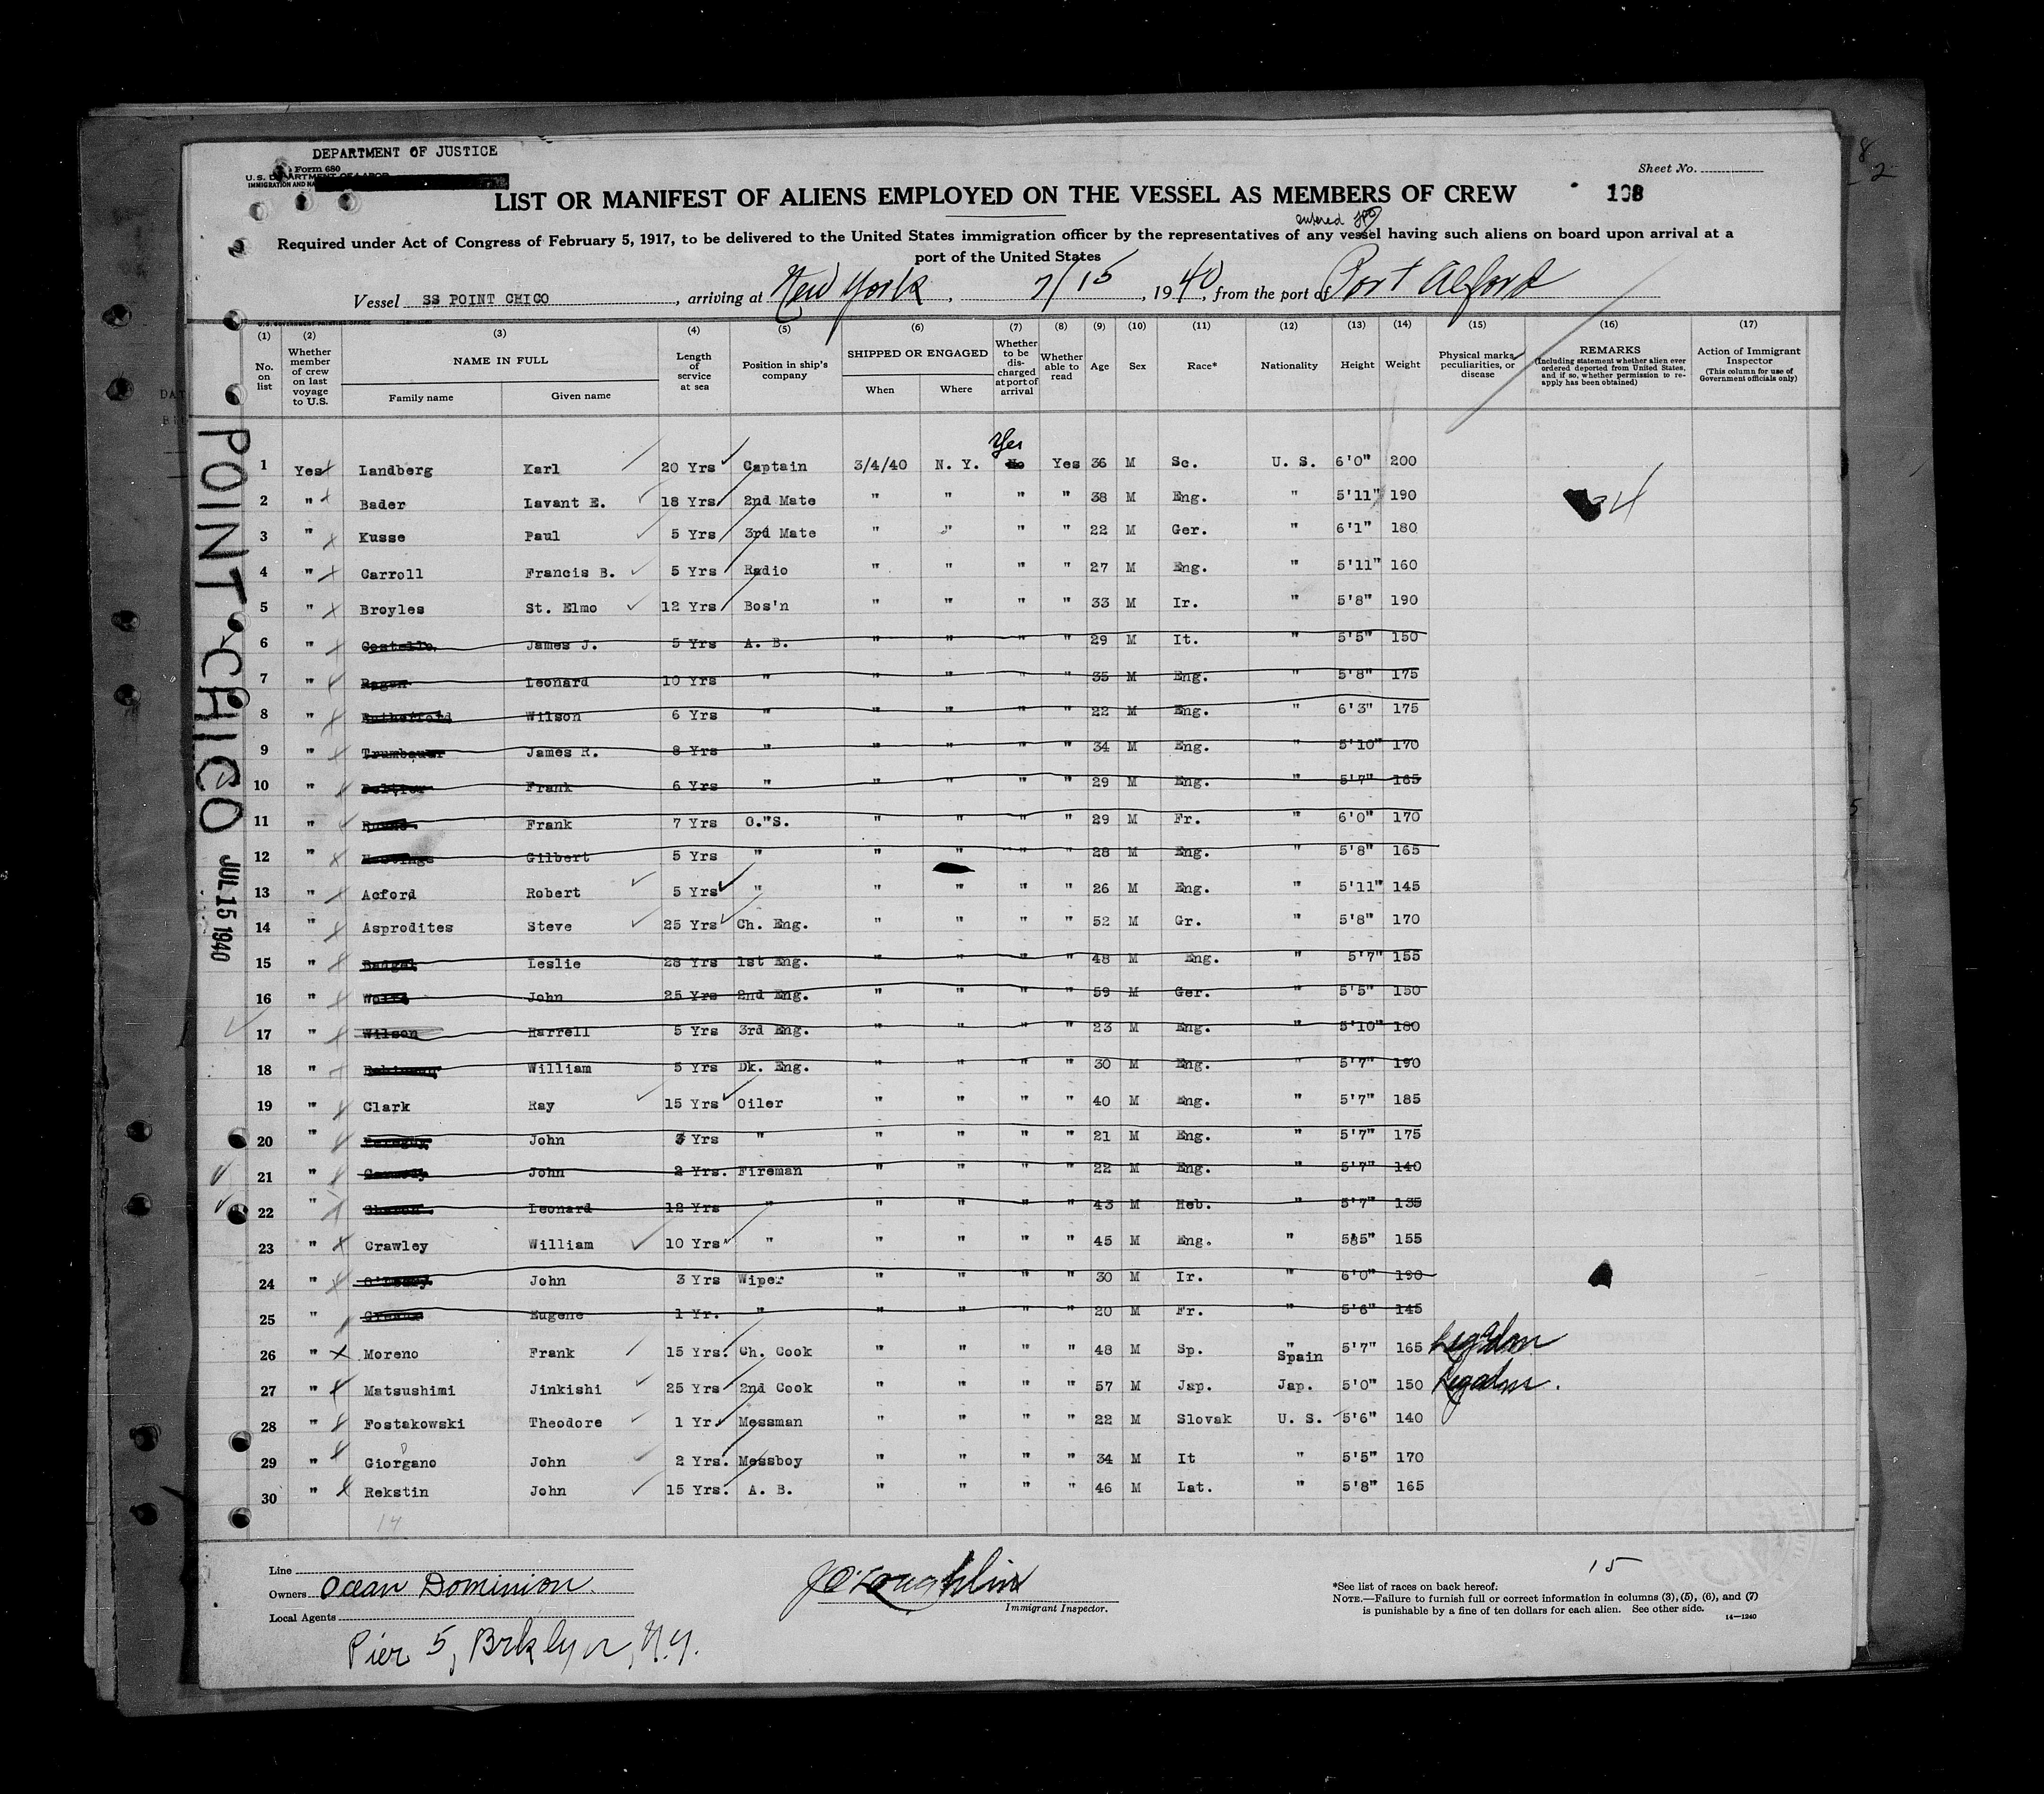 DEPARTMENT OF JUSTICE
Form 680
Sheet No.
LIST OR MANIFEST OF ALIENS EMPLOYED ON THE VESSEL AS MEMBERS OF CREW 108
entered
Required under Act of Congress of February 5, 1917, to be delivered to the United States immigration officer by the representatives of any vessel having such aliens on board upon arrival at a
port of the United States
Vessel SS POINT CHICO, arriving at New York, 7/15, 1940, from the port of Port Alford
(1) (2) (3) (4) (5) (6) (7) (8) (9) (10) (11) (12) (13) (14) (15) (16) (17)
No. on list
Whether member of crew on last voyage to U.S.
NAME IN FULL
Family name Given name
Length of service at sea
Position in ship's company
SHIPPED OR ENGAGED
When Where
Whether to be discharged at port of arrival
Whether able to read
Age
Sex
Race*
Nationality
Height
Weight
Physical marks, peculiarities, or disease
REMARKS
(Including statement whether alien ever ordered deported from United States, and if so, whether permission to re-apply has been obtained)
Action of Immigrant Inspector
(This column for use of Government officials only)
Yes
1 Yes Landberg Karl 20 Yrs Captain 3/4/40 N. Y. No Yes 36 M Sc. U. S. 6'0" 200
2 " Bader Lavant E. 18 Yrs 2nd Mate " " " " 38 M Eng. " 5'11" 190
3 " Kusse Paul 5 Yrs 3rd Mate " " " " 22 M Ger. " 6'1" 180
4 " Carroll Francis B. 5 Yrs Radio " " " " 27 M Eng. " 5'11" 160
5 " Broyles St. Elmo 12 Yrs Bos'n " " " " 33 M Ir. " 5'8" 190
6 " Costello James J. 5 Yrs A. B. " " " " 29 M It. " 5'5" 150
7 " Leonard 10 Yrs " " " " " 35 M Eng. " 5'8" 175
8 " Rutherford Wilson 6 Yrs " " " " " 22 M Eng. " 6'3" 175
9 " Trumbauer James R. 8 Yrs " " " " " 34 M Eng. " 5'10" 170
10 " Frank 6 Yrs " " " " " 29 M Eng. " 5'7" 165
11 " Frank 7 Yrs O."S. " " " " 29 M Fr. " 6'0" 170
12 " Gilbert 5 Yrs " " " " " 28 M Eng. " 5'8" 165
13 " Acford Robert 5 Yrs " " " " " 26 M Eng. " 5'11" 145
14 " Asprodites Steve 25 Yrs Ch. Eng. " " " " 52 M Gr. " 5'8" 170
15 " Leslie 28 Yrs 1st Eng. " " " " 48 M Eng. " 5'7" 155
16 " John 25 Yrs 2nd Eng. " " " " 59 M Ger. " 5'5" 150
17 " Wilson Harrell 5 Yrs 3rd Eng. " " " " 23 M Eng. " 5'10" 180
18 " William 5 Yrs Dk. Eng. " " " " 30 M Eng. " 5'7" 190
19 " Clark Ray 15 Yrs Oiler " " " " 40 M Eng. " 5'7" 185
20 " John 3 Yrs " " " " " 21 M Eng. " 5'7" 175
21 " John 2 Yrs. Fireman " " " " 22 M Eng. " 5'7" 140
22 " Leonard 12 Yrs " " " " " 43 M Heb. " 5'7" 135
23 " Crawley William 10 Yrs " " " " " 45 M Eng. " 585" 155
24 " John 3 Yrs Wiper " " " " 30 M Ir. " 6'0" 190
25 " Eugene 1 Yr. " " " " " 20 M Fr. " 5'6" 145
26 " Moreno Frank 15 Yrs. Ch. Cook " " " " 48 M Sp. " Spain 5'7" 165
27 " Matsushimi Jinkishi 25 Yrs 2nd Cook " " " " 57 M Jap. Jap. 5'0" 150
28 " Fostakowski Theodore 1 Yr. Messman " " " " 22 M Slovak U. S. 5'6" 140
29 " Giorgano John 2 Yrs. Messboy " " " " 34 M It " 5'5" 170
30 " Rekstin John 15 Yrs. A. B. " " " " 46 M Lat. " 5'8" 165
14
15
POINT CHICO
JUL 15 1940
Line
Owners Ocean Dominion
Local Agents
Pier 5, Brklyn, N.Y.
J O'Loughlin
Immigrant Inspector.
*See list of races on back hereof.
NOTE.—Failure to furnish full or correct information in columns (3), (5), (6), and (7)
is punishable by a fine of ten dollars for each alien. See other side.
14—1240